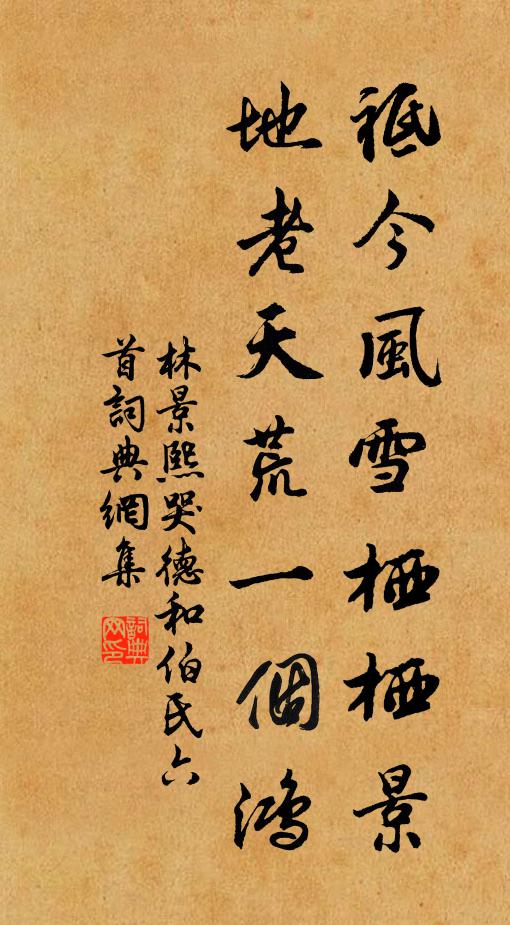 祗今風雪栖栖景
地老天荒一個鴻
林景熙哭德和伯氏六
首詞典網集
詞典網印